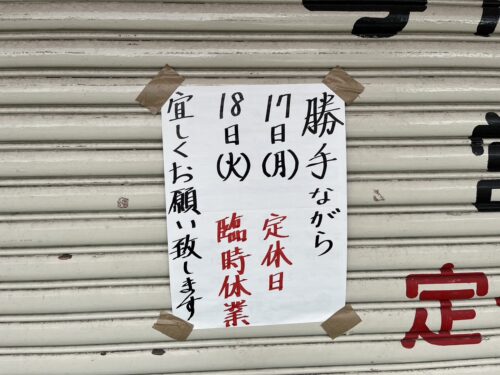 勝手ながら
17日(月) 定休日
18日(火) 臨時休業
宜しくお願い致します
定